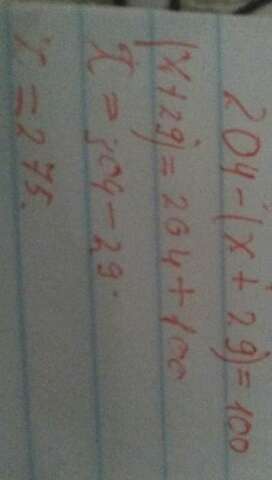 204-(x+29)=100
(x+29)=204+100
x=304-29.
x=275.